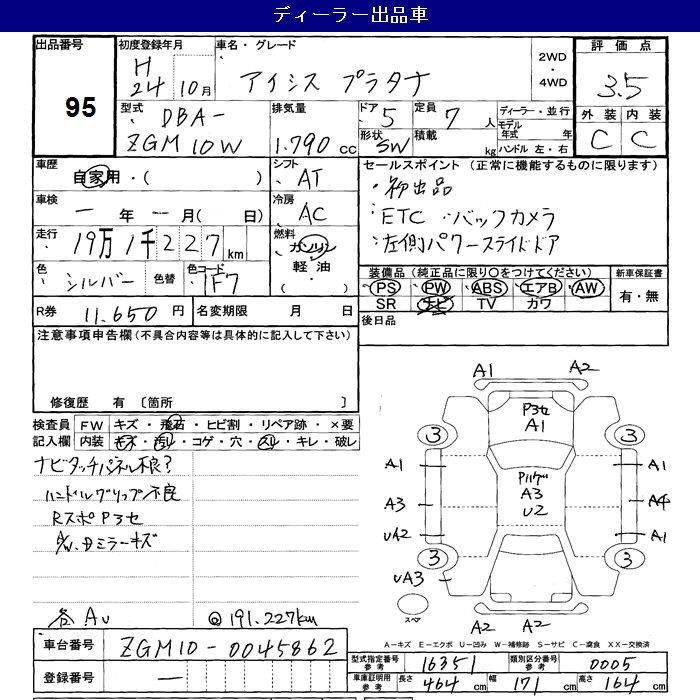 ディーラー出品車
出品番号 95
初度登録年月 H 24年 10月
車名・グレード アイシス プラタナ
2WD・4WD
評価点 3.5
外装 C 内装 C
型式 DBA-ZGM10W
排気量 1.790 cc
ドア 5
形状 SW
定員 7 人
積載 kg
ディーラー・並行
モデル年式 年
ハンドル 左・右
車歴 自家用・( )
シフト AT
車検 ー 年 ー 月( 日)
冷房 AC
走行 19万1千227km
燃料 ガソリン 軽油・( )
色 シルバー 色替
色コード 1F7
R券 11.650 円
名変期限 月 日
セールスポイント (正常に機能するものに限ります)
・初出品
・ETC・バックカメラ
・左側パワースライドドア
装備品 (純正品に限り○をつけてください)
PS・PW・ABS・エアB・AW
SR ナビ TV カワ
新車保証書 有・無
後日品
注意事項申告欄(不具合内容等は具体的に記入して下さい)
修復歴 有 〔箇所 〕
検査員記入欄
FW キズ・飛石・ヒビ割・リペア跡・×要
内装 キズ・汚レ・コゲ・穴・スレ・キレ・破レ
ナビタッチパネル不良?
ハンドルグリップ不良
RスポP3セ
A/W、Dミラーキズ
各AU
@191.227km
車台番号 ZGM10-0045862
登録番号 ー
A1 A2
P3セ
A1
3 3
A1 A1
Pハゲ
A3
U2
A3 A4
UA2 A1
3 3
UA3
スペア
A2 A2
A−キズ E−エクボ U−凹み W−補修跡 S−サビ C−腐食 XX−交換済
型式指定番号 参考 16351
類別区分番号 参考 0005
車庫証明用 参考 長さ 464 cm 幅 171 cm 高さ 164 cm